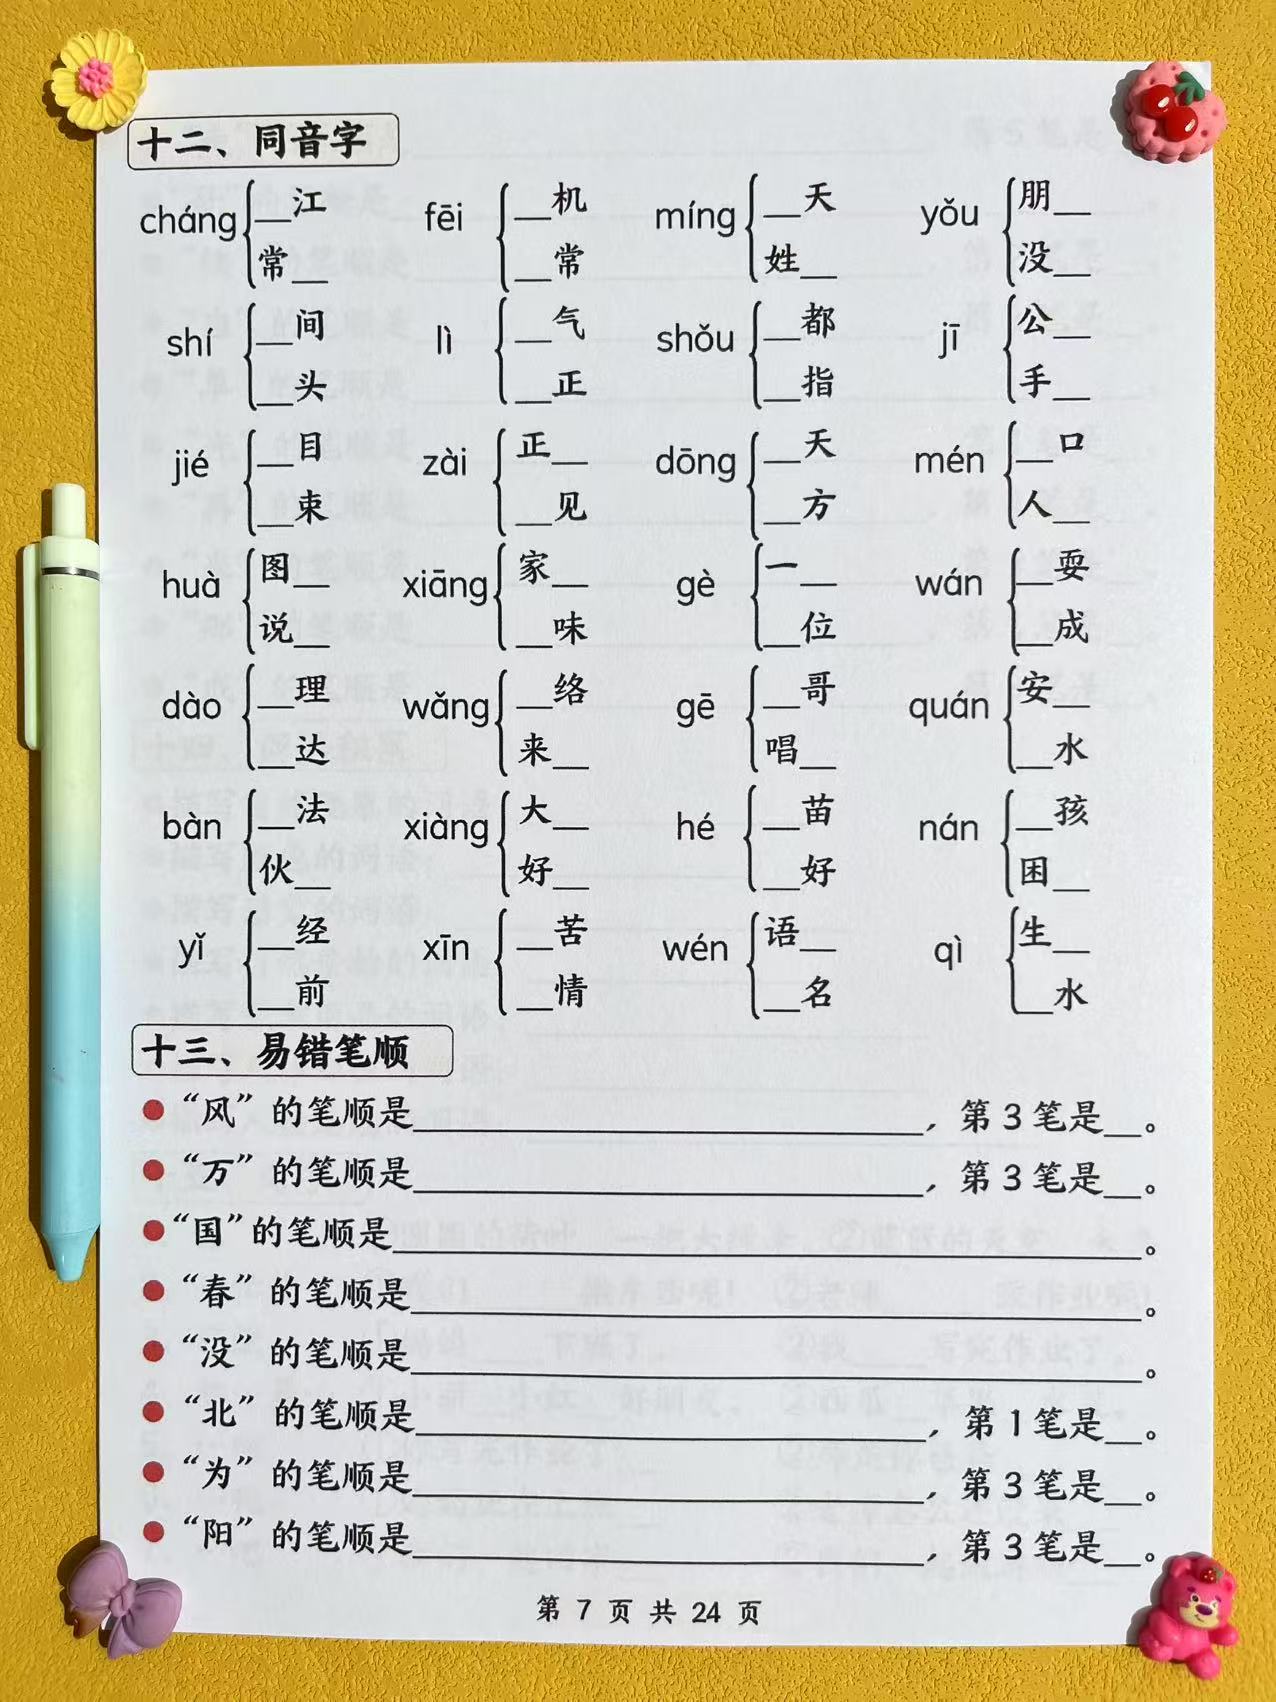 十二、同音字
cháng __江 常__ fēi __机 __常 míng __天 姓__ yǒu 朋__ 没__
shí __间 __头 lì __气 __正 shǒu __都 __指 jī 公__ 手__
jié __目 __束 zài 正__ __见 dōng __天 __方 mén __口 人__
huà 图__ 说__ xiāng 家__ __味 gè 一__ __位 wán __耍 __成
dào __理 __达 wǎng __络 来__ gē __哥 唱__ quán 安__ __水
bàn __法 伙__ xiàng 大__ 好__ hé __苗 __好 nán __孩 困__
yǐ __经 __前 xīn __苦 __情 wén 语__ __名 qì 生__ __水
十三、易错笔顺
“风”的笔顺是____________________，第3笔是__。
“万”的笔顺是____________________，第3笔是__。
“国”的笔顺是____________________。
“春”的笔顺是____________________。
“没”的笔顺是____________________。
“北”的笔顺是____________________，第1笔是__。
“为”的笔顺是____________________，第3笔是__。
“阳”的笔顺是____________________，第3笔是__。
第 7 页 共 24 页